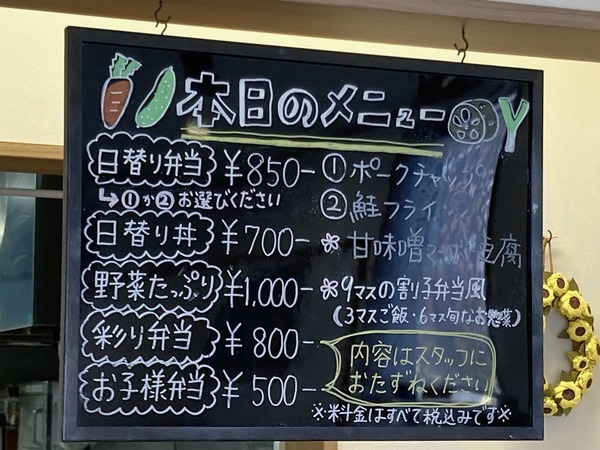 本日のメニュー
日替り弁当 ¥850- ①ポークチャップ
↳①か②お選びください ②鮭フライ
日替り丼 ¥700- 甘味噌マーボー豆腐
野菜たっぷり ¥1,000- 9マスの割子弁当風
(3マスご飯・6マス旬なお惣菜)
彩り弁当 ¥800-
お子様弁当 ¥500-
内容はスタッフに
おたずねください
※料金はすべて税込みです※